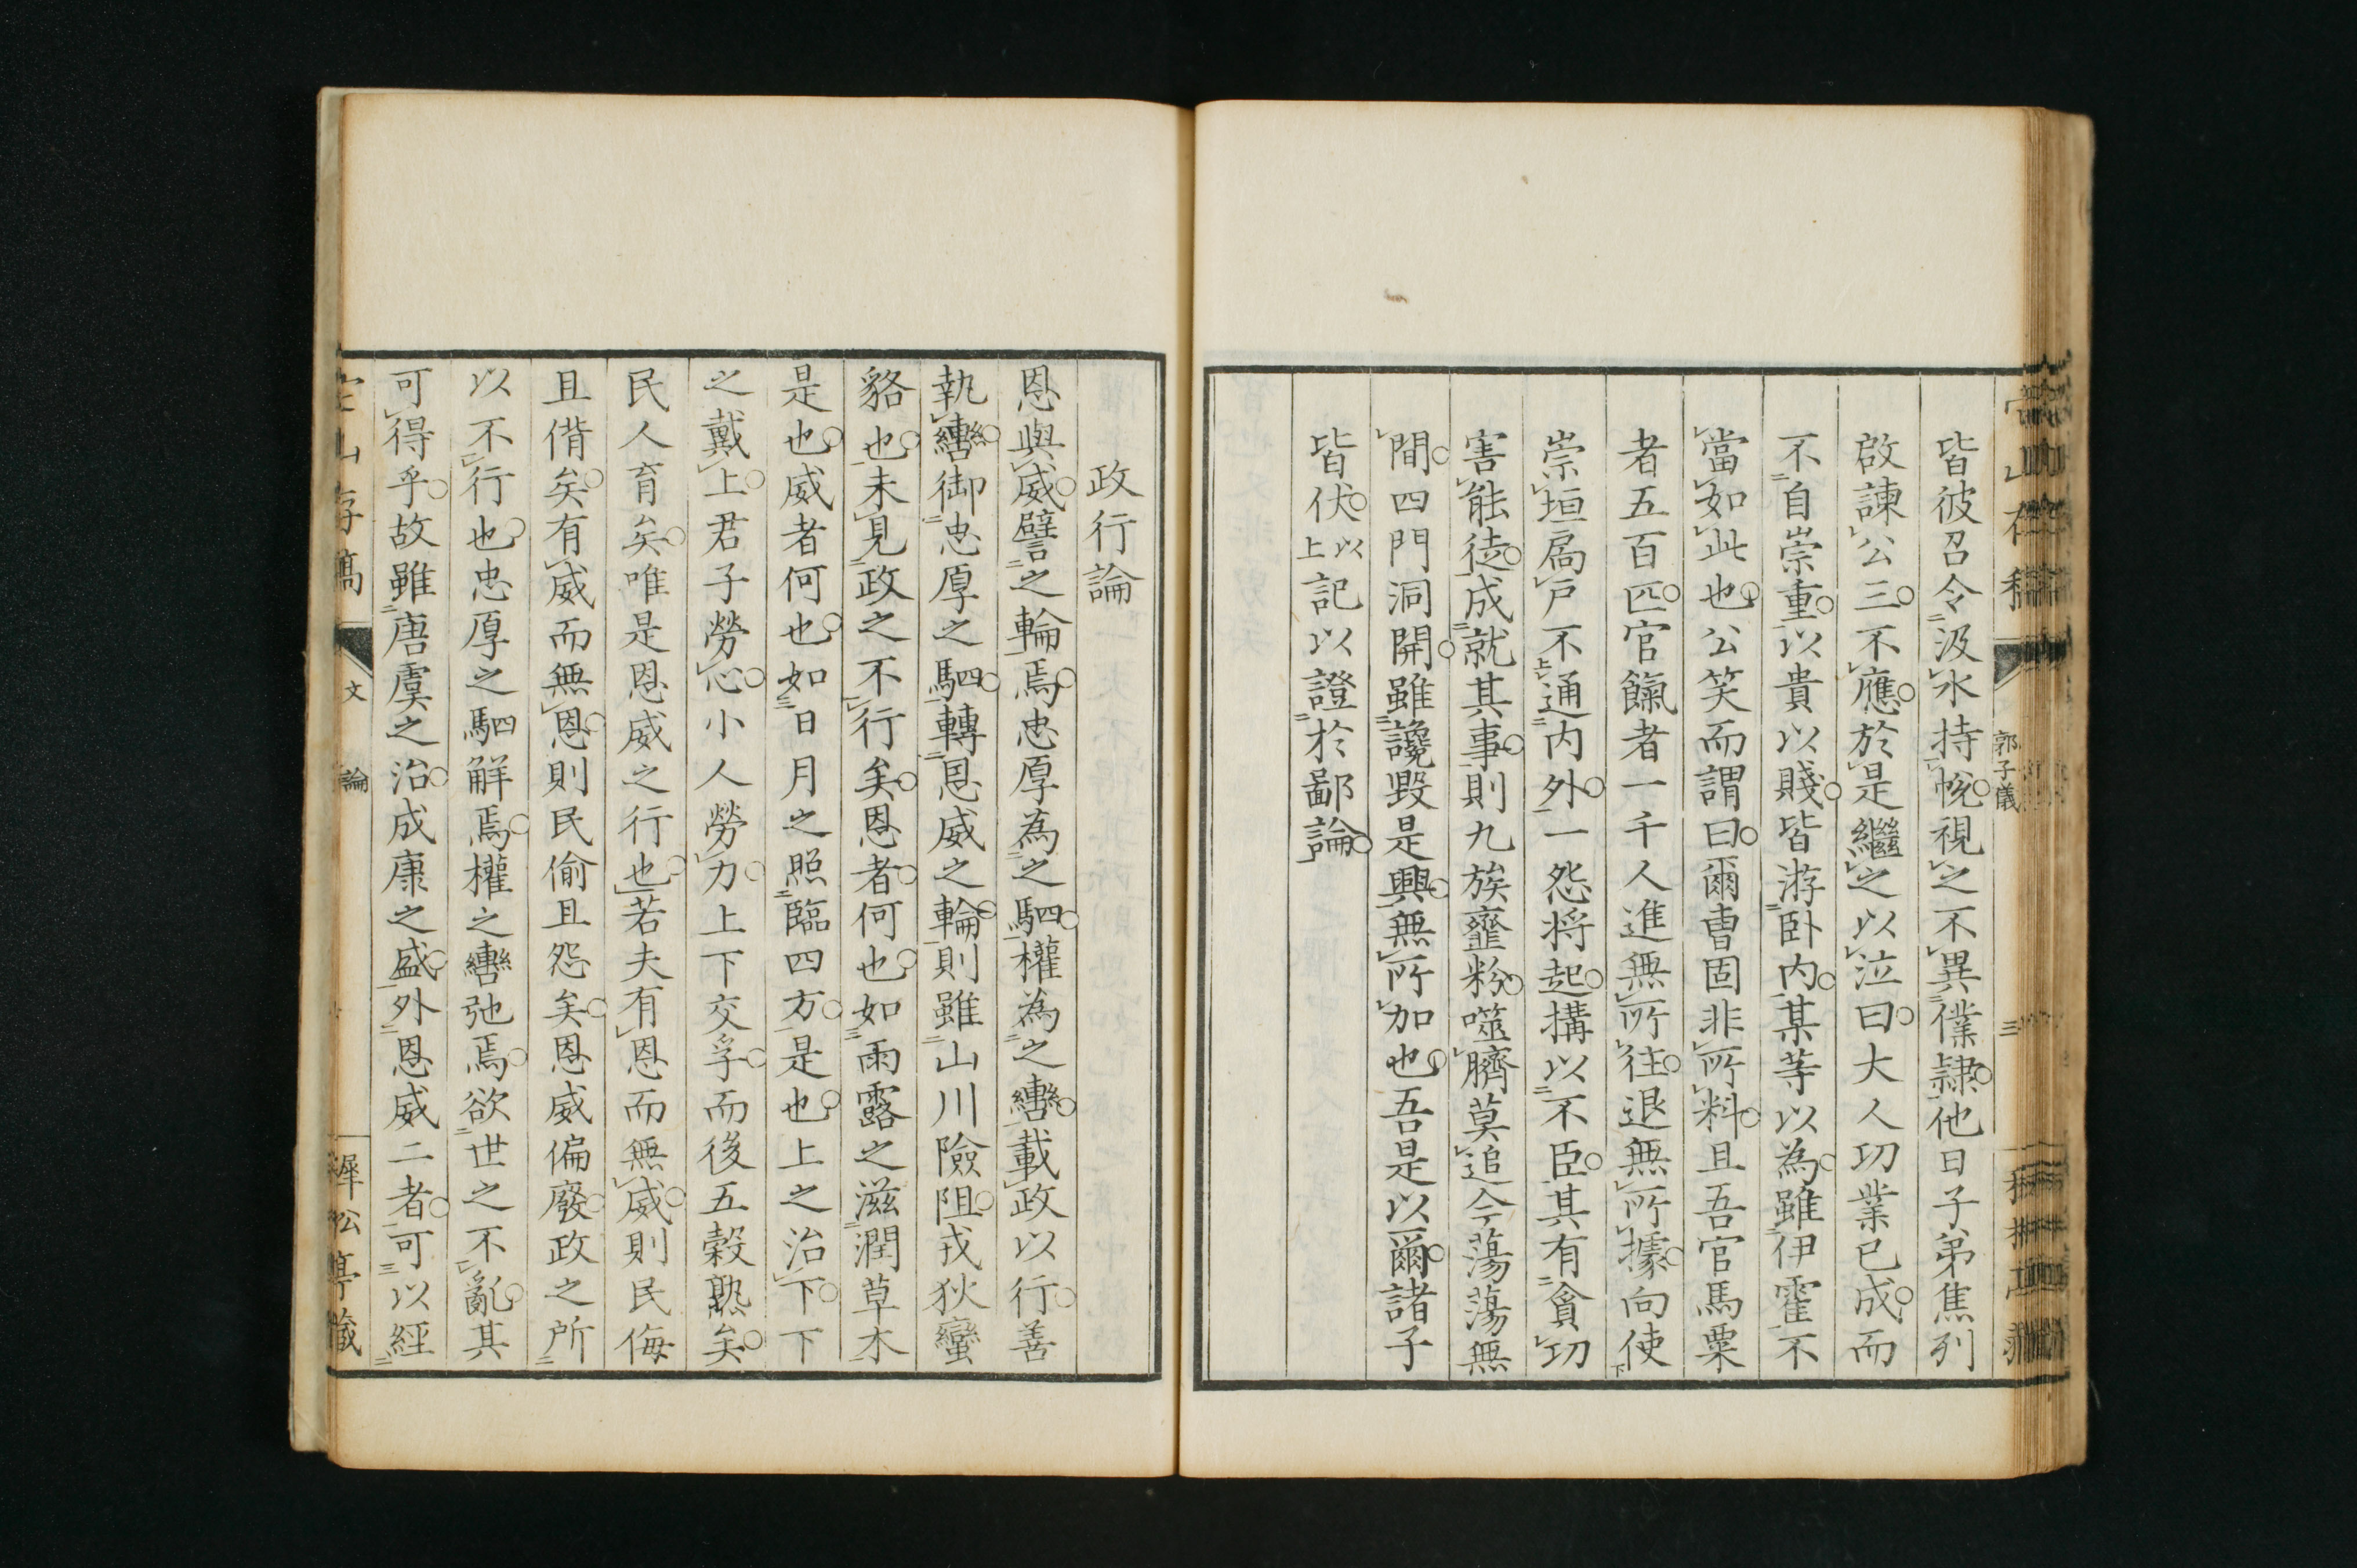 皆彼召令汲水持帨視之不異僕隸他日子弟焦列
啟諫公三不應於是繼之以泣曰大人功業已成而
不自崇重以貴以賤皆游臥内某等以為雖伊霍不
當如此也公笑而謂曰爾曹固非所料且吾官馬粟
者五百匹官餼者一千人進無所往退無所據向使
崇垣扃戶不通内外一怨将起搆以不臣其有貪功
害能徒成就其事則九族虀粉噬臍莫追今蕩蕩無
間四門洞開雖讒毀是興無所加也吾是以爾諸子
皆伏以上記以證於鄙論
郭子儀
三
政行論
恩與威譬之輪焉忠厚為之駟權為之轡載政以行善
執轡御忠厚之駟轉恩威之輪則雖山川險阻戎狄蠻
貉也未見政之不行矣恩者何也如雨露之滋潤草木
是也威者何也如日月之照臨四方是也上之治下下
之戴上君子勞心小人勞力上下交孚而後五穀熟矣
民人育矣唯是恩威之行也若夫有恩而無威則民侮
且偝矣有威而無恩則民偷且怨矣恩威偏廢政之所
以不行也忠厚之駟解焉權之轡弛焉欲世之不亂其
可得乎故雖唐虞之治成康之盛外恩威二者可以經
山存稿
文
論
犀松亭藏